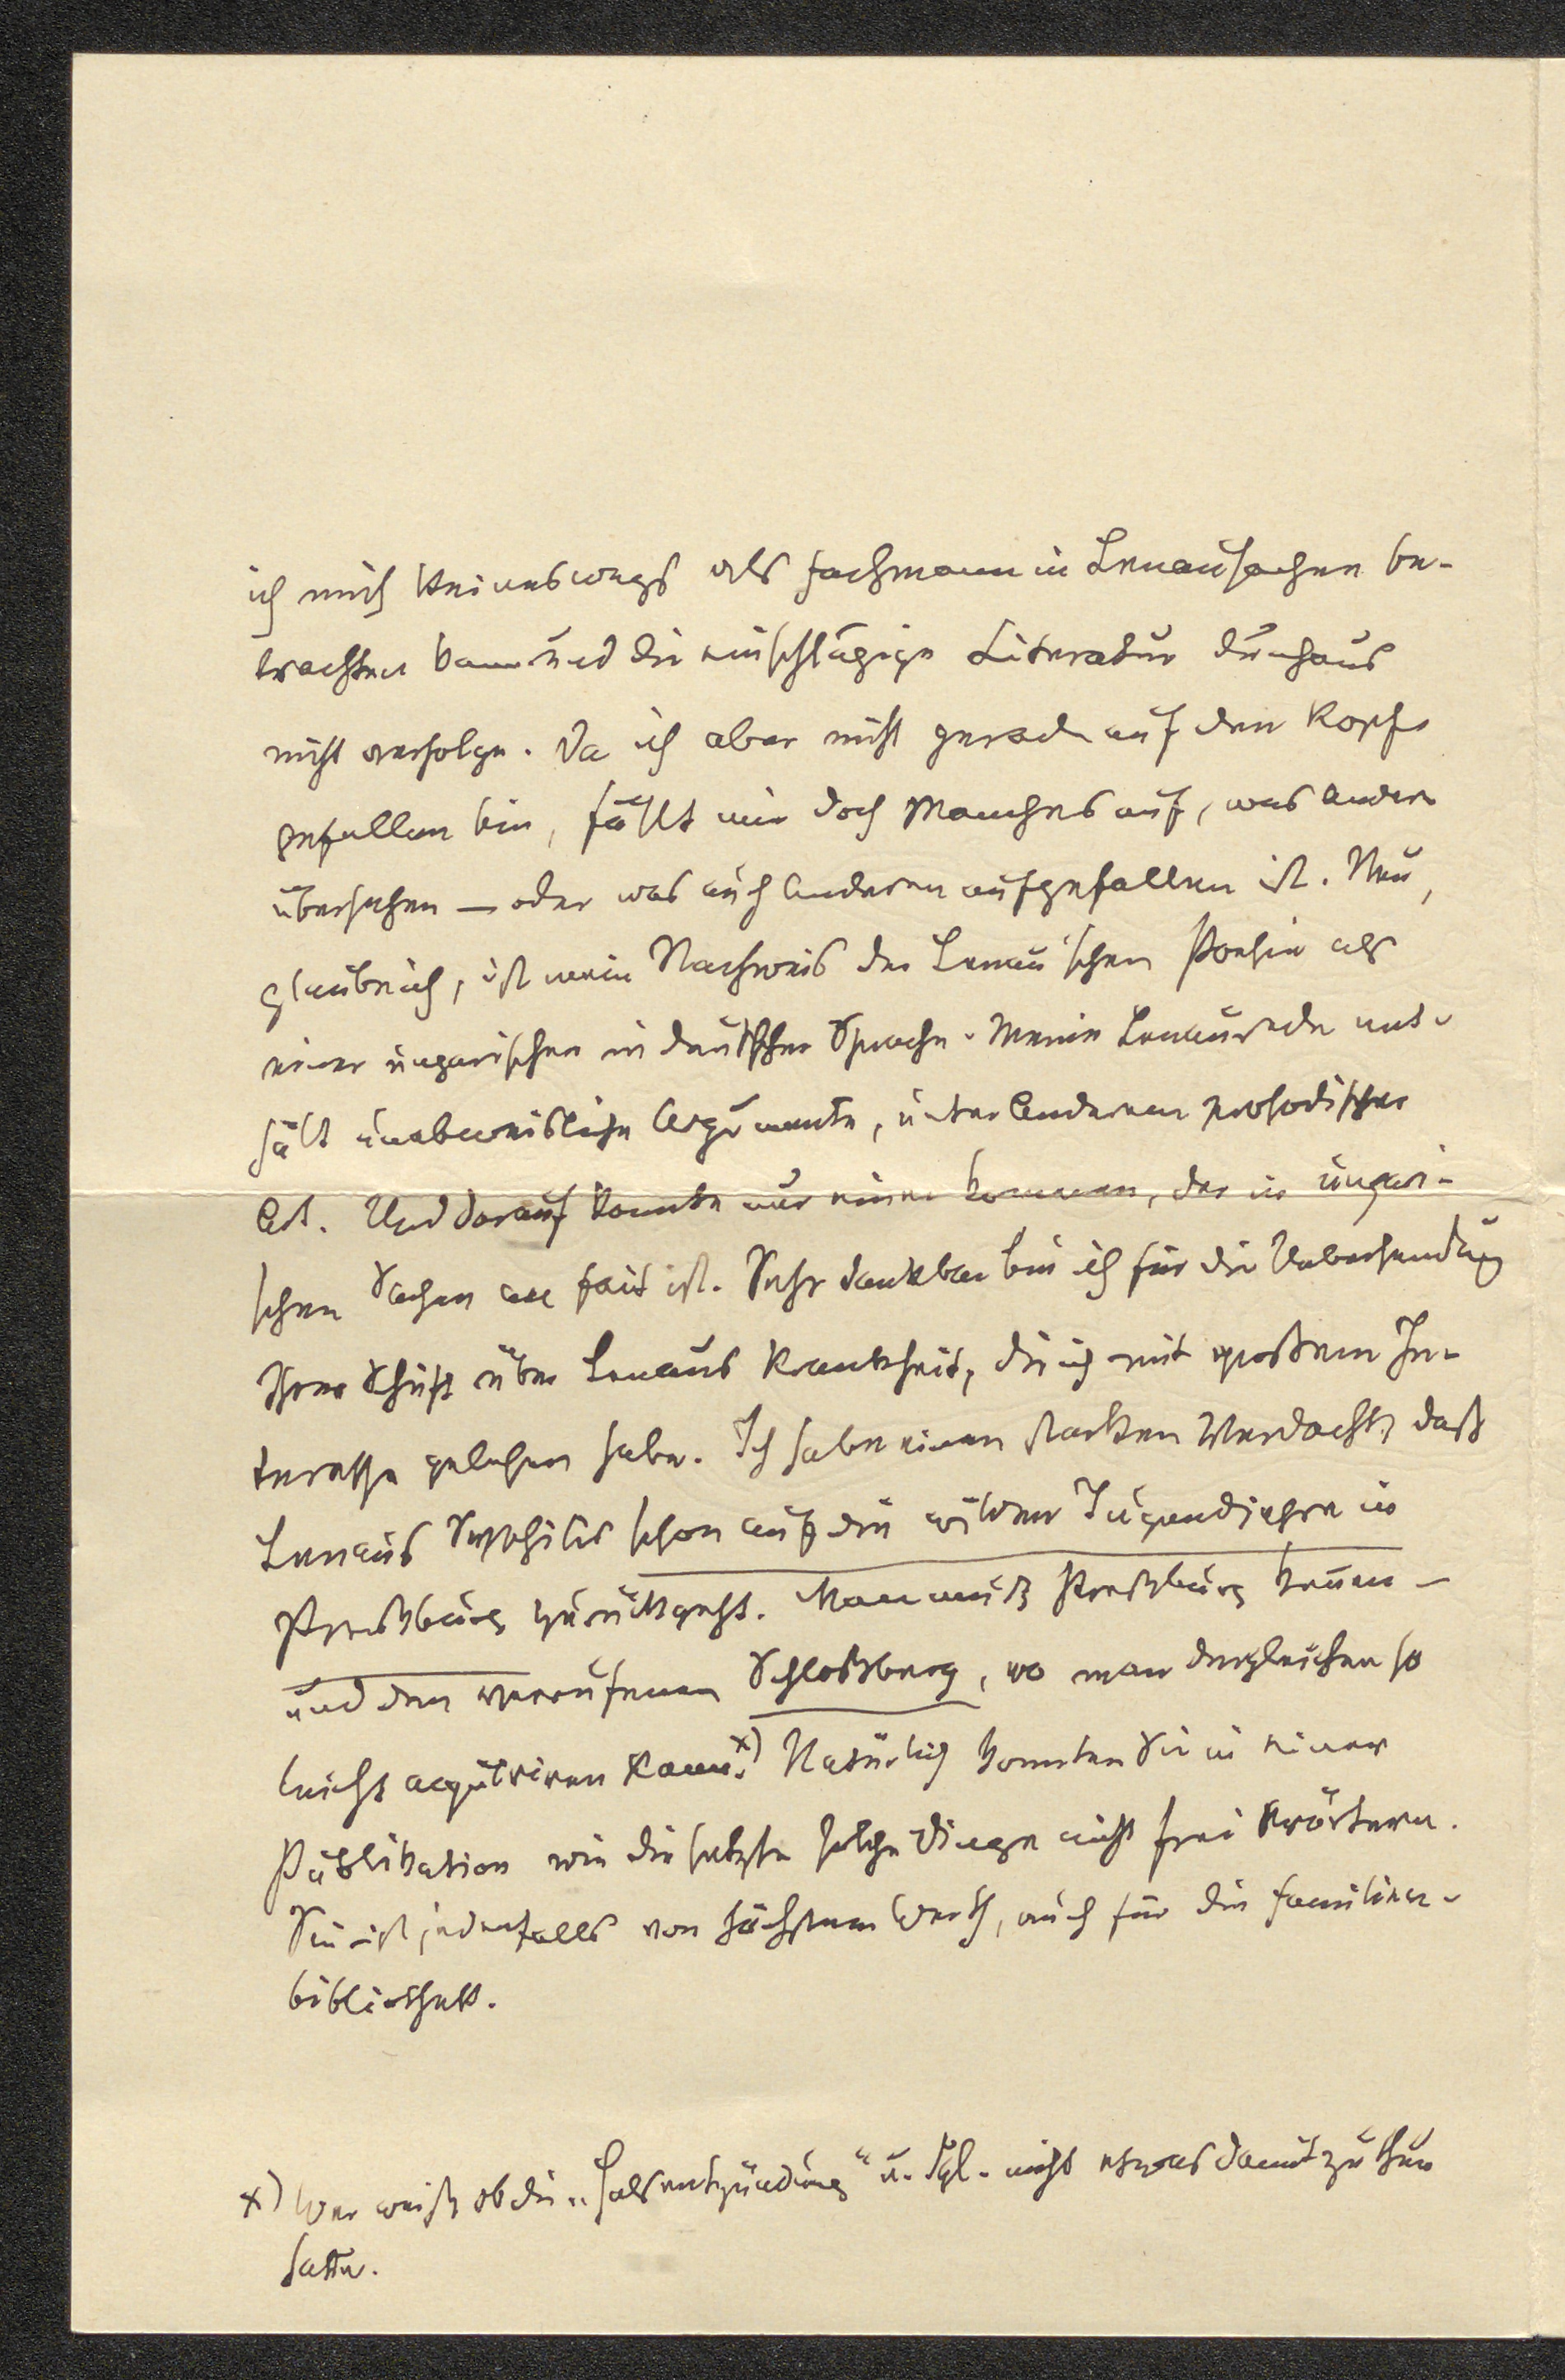 ich mich keineswegs als Fachmann in Lenausachen be-
trachten kann und die einschlägige Literatur durchaus
nicht verfolge. Da ich aber nicht gerade auf den Kopf
gefallen bin, fällt mir doch Manches auf, was Andere
übersehen — oder was auch Anderen aufgefallen ist. Neu,
glaube ich, ist mein Nachweis der Lenau'schen Poesie als
einer ungarischen in deutscher Sprache. Meine Lenaurede ent-
hält unabweisliche Argumente, unter Anderem prosodischer
Art. Und darauf konnte nur einer kommen, der in ungari-
schen Sachen au fait ist. Sehr dankbar bin ich für die Uebersendung
Ihrer Schrift über Lenaus Krankheit, die ich mit großem In-
teresse gelesen habe. Ich habe einen starken Verdacht, daß
Lenaus Syphilis schon auf die wilden Jugendjahre in
Preßburg zurückgeht. Man muß Preßburg kennen —
und den verrufenen Schloßberg, wo man dergleichen so
leicht acquiriren kann.x) Natürlich konnten Sie in einer
Publikation wie die letzte solche Dinge nicht frei erörtern.
Sie ist jedenfalls von höchstem Werth, auch für die Familien-
bibliothek.
x) Wer weiß ob die „Halsentzündung" u. dgl. nicht etwas damit zu thun
hatte.